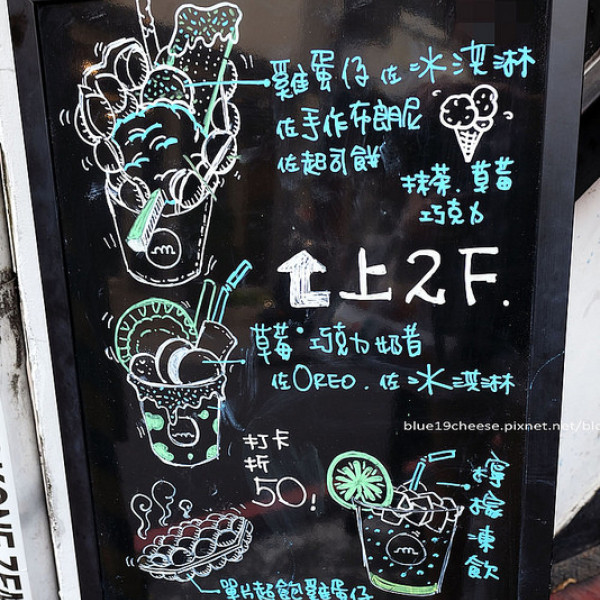 雞蛋仔佐冰淇淋
佐手作布朗尼
佐起司餅
抹茶.草莓
巧克力
上2F.
草莓.巧克力奶昔
佐OREO.佐冰淇淋
blue19cheese.pixnet.net/blo
打卡
折
50!
檸檬凍飲
單片起飽雞蛋仔